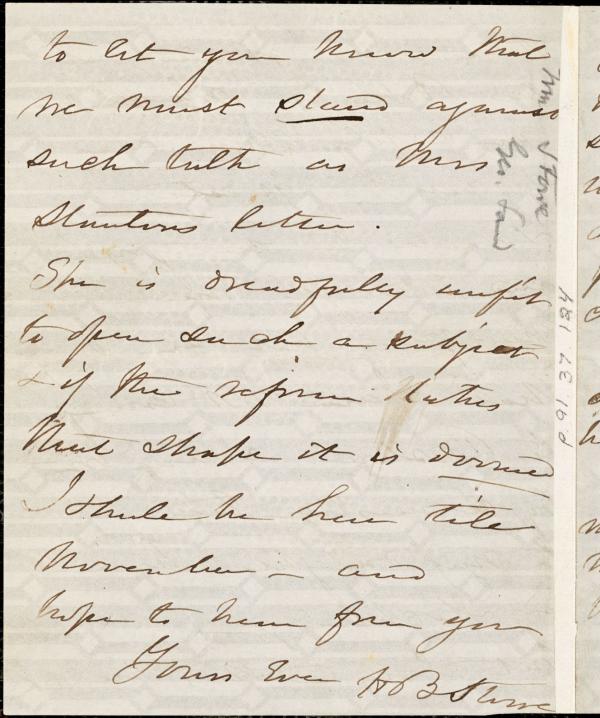 to let you know that
we must stand against
such talk as Mrs
Stantons letter.
She is dreadfully unfit
to open such a subject
& if the reform takes
that shape it is doomed
I shall be here till
November – and
hope to hear from you
Yours Ever HB Stowe
Mrs Stowe
Geo. Sand
P. 91. 37. 184